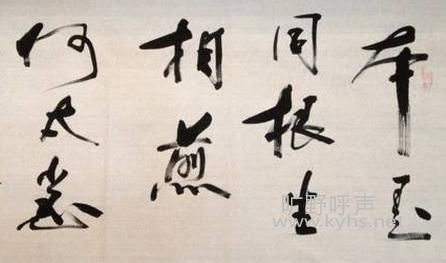 本是
同根生
相煎
何太急
旷野呼声
www.kyhs.net